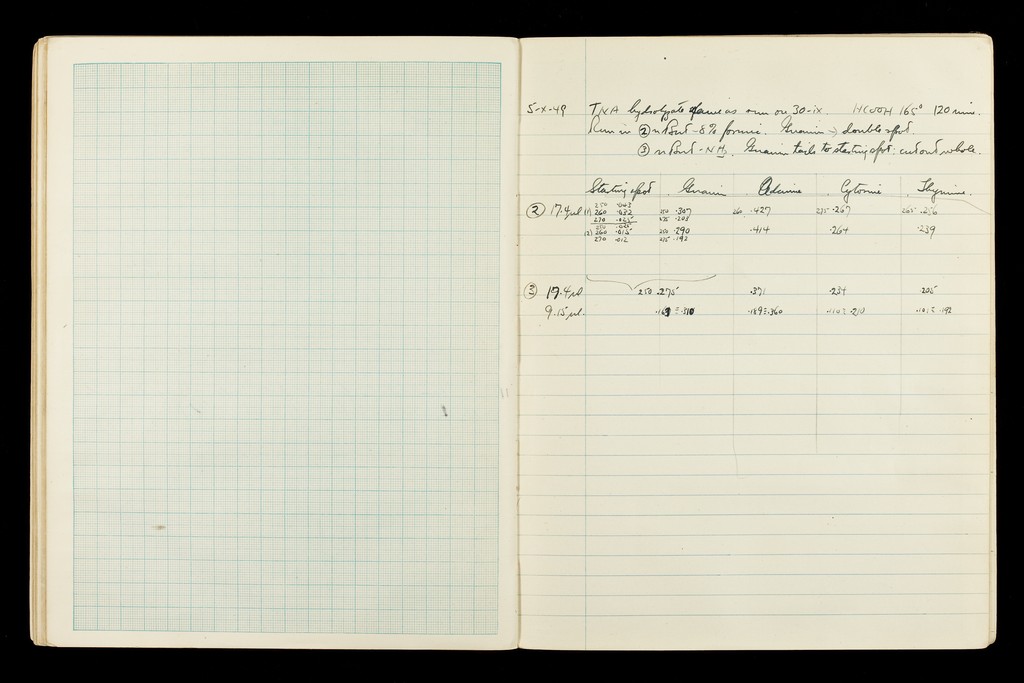 5-X-49 TNA hydrolysate same as run on 30-ix. HCOOH 165° 120 mins.
Run in ② nBut-8% formic. Guanin → double spot.
③ nBut-NH3. Guanin tails to starting spot: cut out whole.
Starting spot Guanin Adenine Cytosine Thymine
② 17.4μl (1) 250 .043
260 .032 250 .307 260 .427 275 .267 265 .256
270 .025 275 .208
(2) 250 .025
260 .015 250 .290 .414 .264 .239
270 .012 275 .192
③ 17.4μl 250 .275 .371 .234 .205
9.15μl. .310 .189≡.360 .110≡.210 .101≡.192